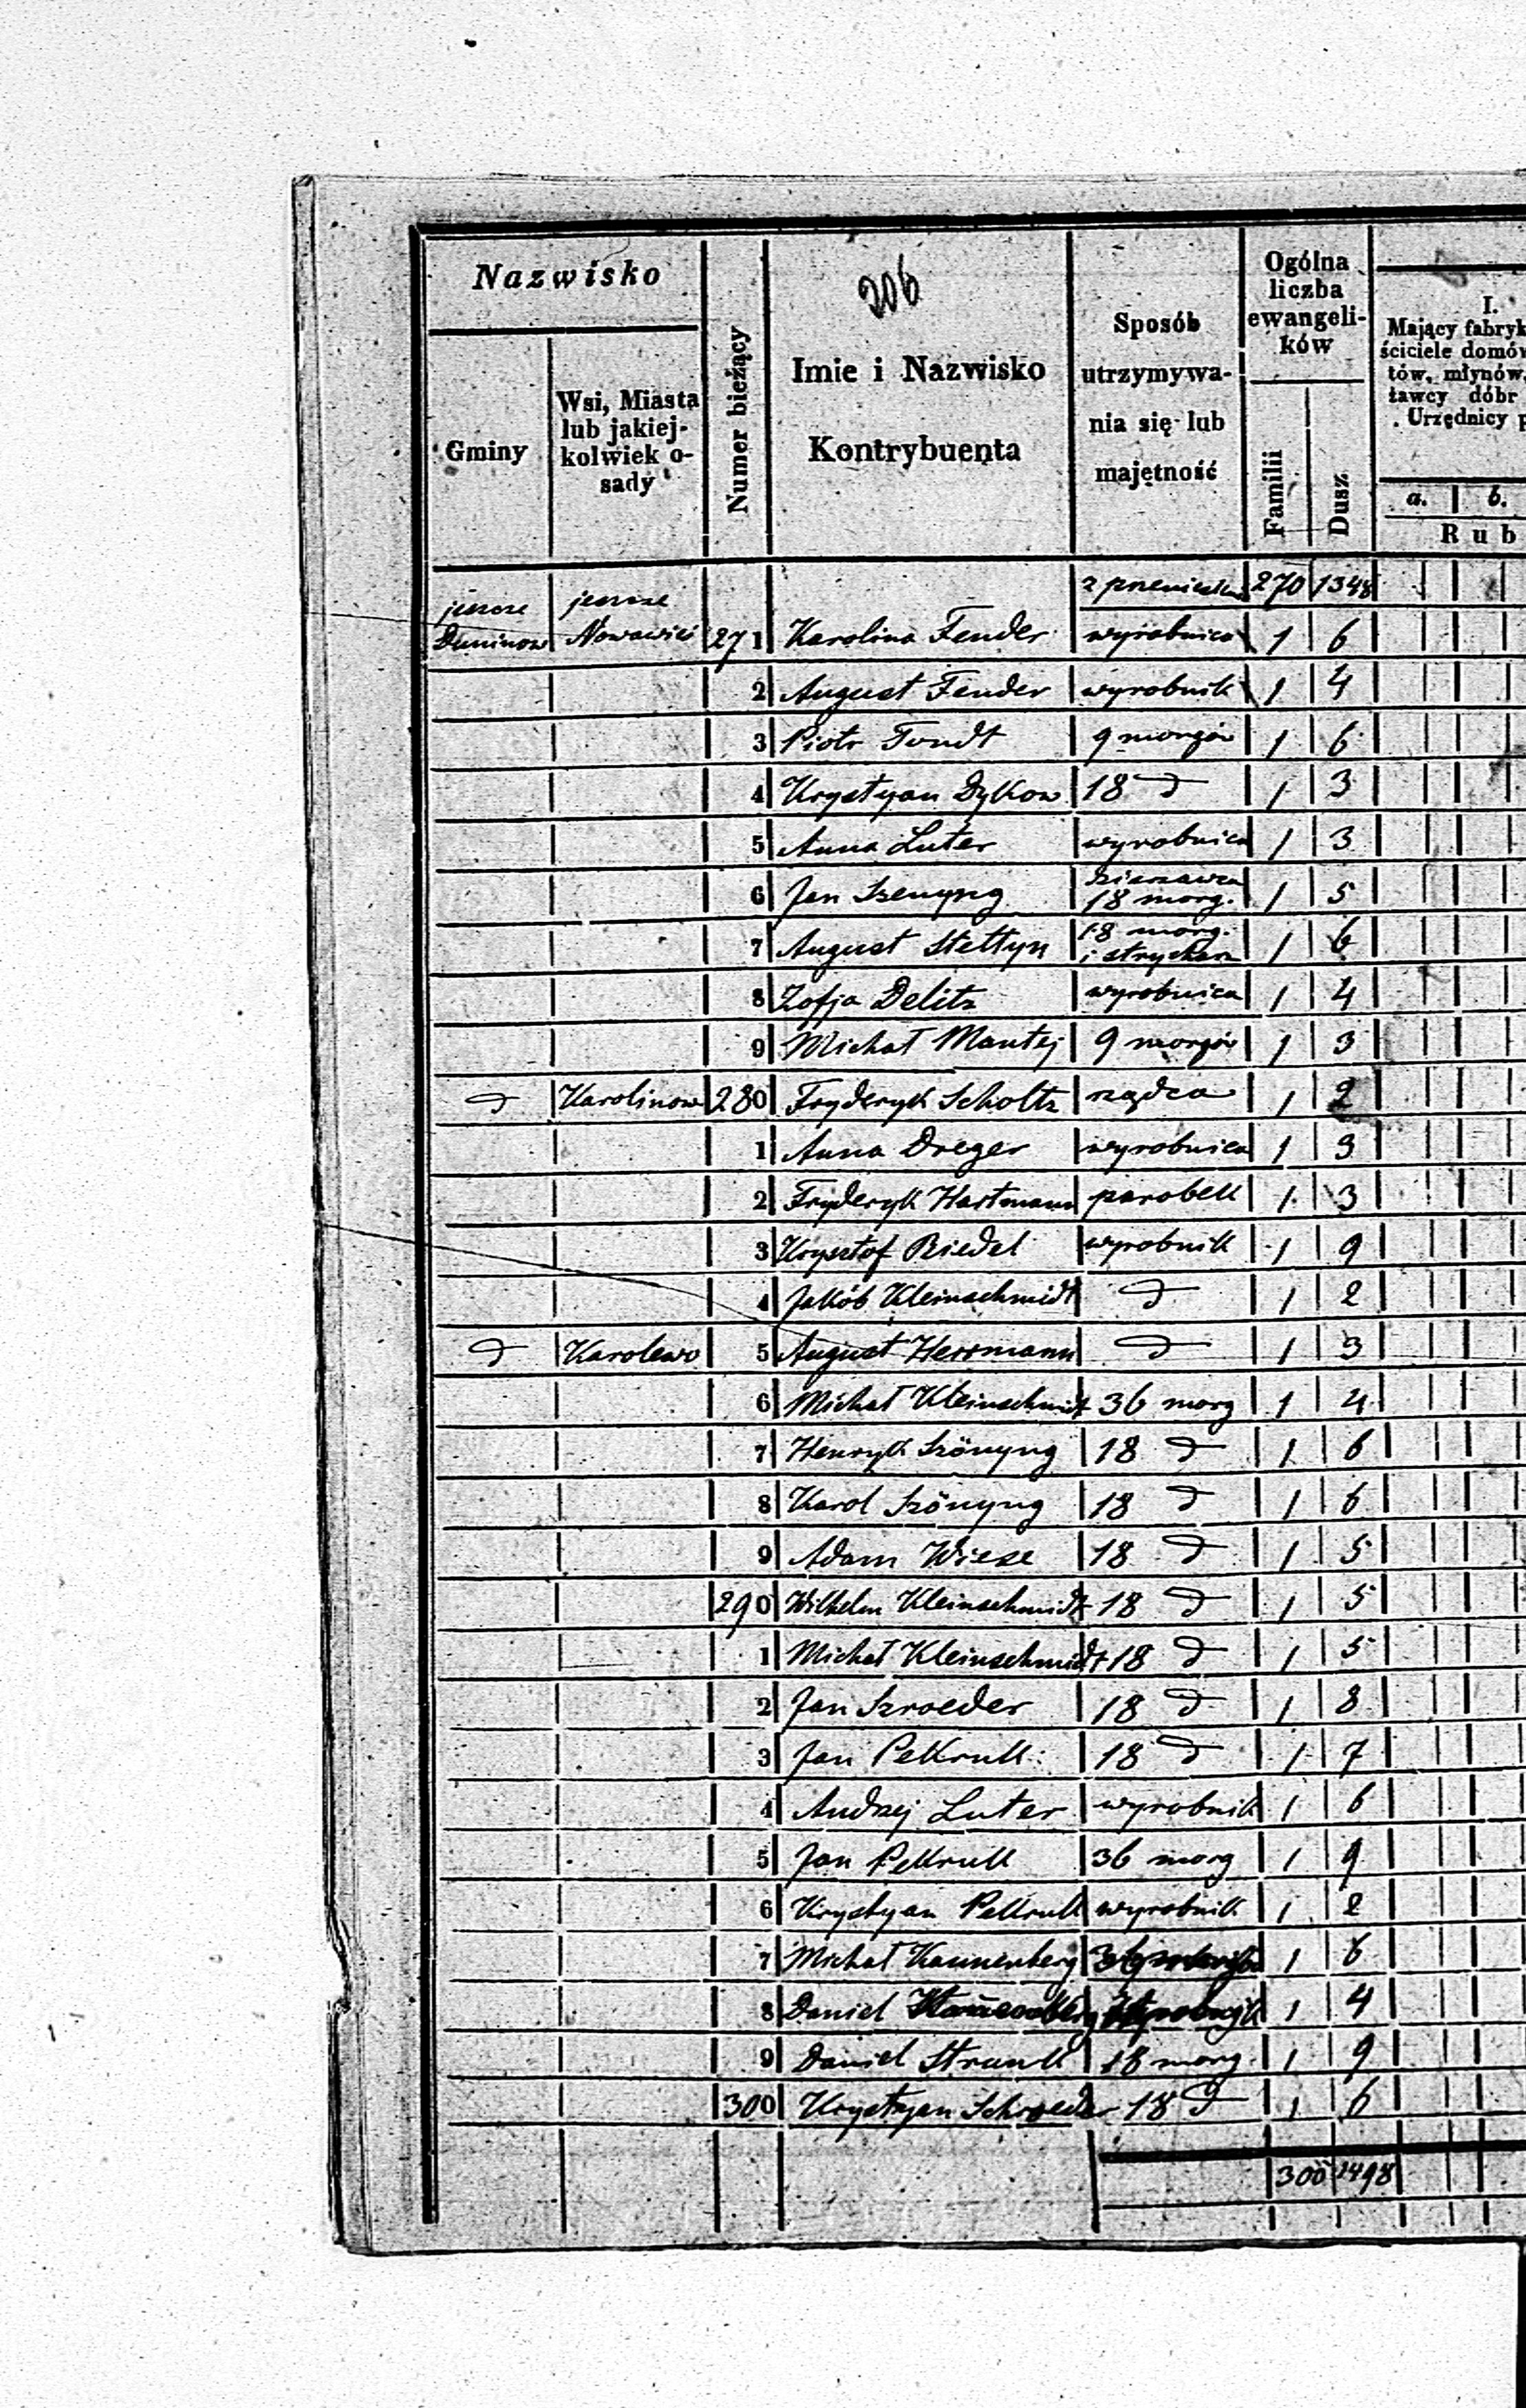 Nazwisko
Gminy
Wsi, Miasta
lub jakiej-
kolwiek o-
sady
Numer bieżący
206
Imie i Nazwisko
Kontrybuenta
Sposób
utrzymywa-
nia się lub
majętność
Ogólna
liczba
ewangeli-
ków
Familii
Dusz
I.
Mający fabryk
ściciele domów
tów, młynów,
żawcy dóbr
Urzędnicy p
a. b.
Rub
z przeniesienia 270 1348
jeszcze jeszcze
Duninow Nowawieś 271 Karolina Fender wyrobnica 1 6
2 August Fender wyrobnik 1 4
3 Piotr Tondt 9 morgów 1 6
4 Krystyan Dykow 18 d 1 3
5 Anna Luter wyrobnica 1 3
6 Jan Szenyng dzierzawca 18 morg. 1 5
7 August Stettyn 18 morg. i strycharz 1 6
8 Zofja Delitz wyrobnica 1 4
9 Michał Mantej 9 morgów 1 3
d Karolinow 280 Fryderyk Scholtz rządca 1 2
1 Anna Dreger wyrobnica 1 3
2 Fryderyk Hartmann parobek 1 3
3 Krysztof Riedel wyrobnik 1 9
4 Jakób Kleinschmidt d 1 2
d Karolewo 5 August Herrmann d 1 3
6 Michał Kleinschmidt 36 morg 1 4
7 Henryk Szönyng 18 d 1 6
8 Karol Szönyng 18 d 1 6
9 Adam Wiese 18 d 1 5
290 Wilhelm Kleinschmidt 18 d 1 5
1 Michał Kleinschmidt 18 d 1 5
2 Jan Szroeder 18 d 1 8
3 Jan Pekrull 18 d 1 7
4 Andrzej Luter wyrobnik 1 6
5 Jan Pekrull 36 morg 1 9
6 Krystyan Pekrull wyrobnik 1 2
7 Michał Kannenberg 1 6
8 Daniel 1 4
9 Daniel Strunk 18 morg. 1 9
300 Krystyan Schroeder 18 d 1 6
300 1498